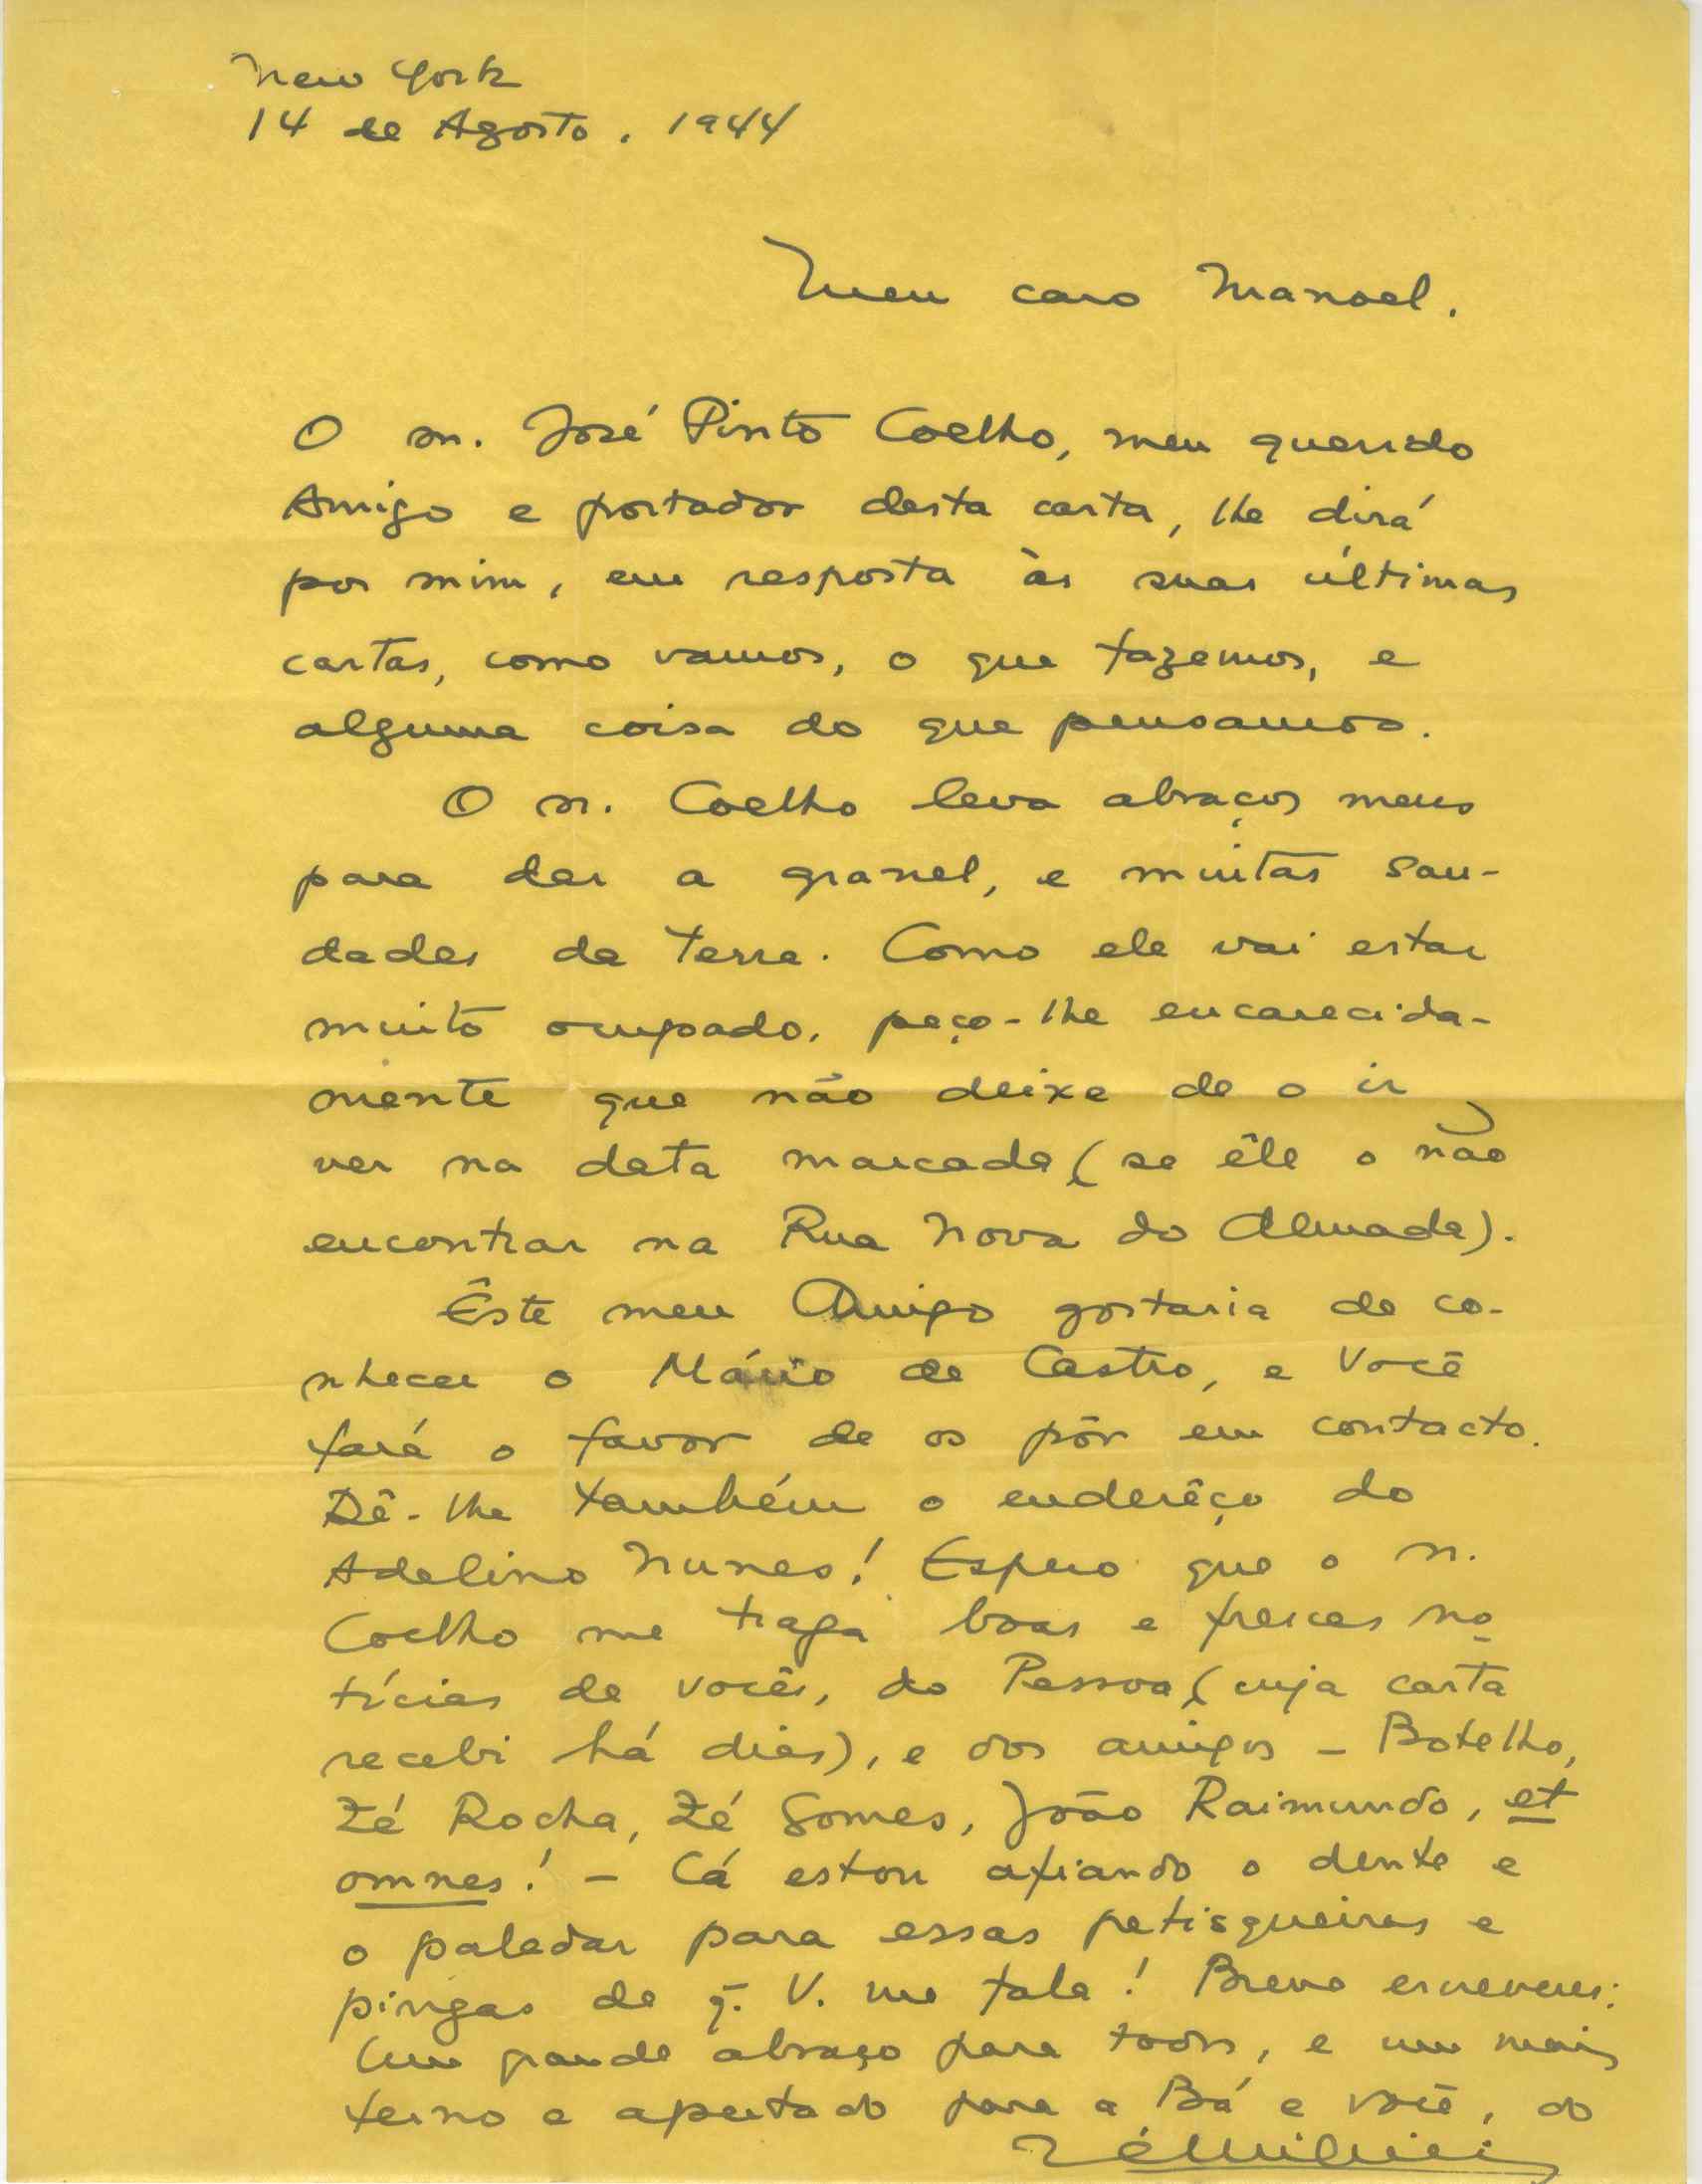 New York
14 de Agosto. 1944
Meu caro Manoel.
O sr. José Pinto Coelho, meu querido
Amigo e portador desta carta, lhe dirá
por mim, em resposta às suas últimas
cartas, como vamos, o que fazemos, e
alguma coisa do que pensamos.
O sr. Coelho leva abraços meus
para dar a granel, e muitas sau-
dades da terra. Como ele vai estar
muito ocupado, peço-lhe encarecida-
mente que não deixe de o ir
ver na data marcada (se êle o não
encontrar na Rua Nova do Almada).
Êste meu Amigo gostaria de co-
nhecer o Mário de Castro, e Você
fará o favor de os pôr em contacto.
Dê-lhe também o enderêço do
Adelino Nunes! Espero que o sr.
Coelho me traga boas e frescas no-
tícias de vocês, do Pessoa (cuja carta
recebi há dias), e dos amigos - Botelho,
Zé Rocha, Zé Gomes, João Raimundo, et
omnes! - Cá estou afiando o dente e
o paladar para essas petisqueiras e
pingas de q. V. me fala! Breve escreverei.
Um grande abraço para todos, e um mais
terno e apertado para a Bá e você, do